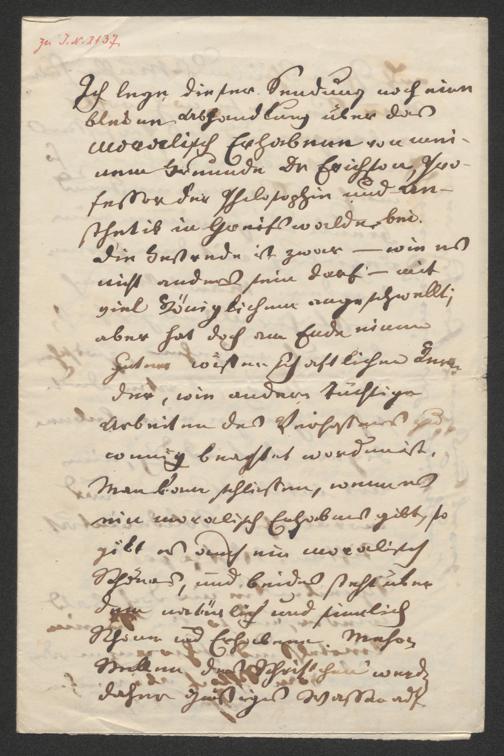 zu I.N. 3137.
Ich lege dieser Sendung noch eine
kleine Abhandlung über das
moralisch Erhabene von mei-
nem Freunde Dr Erichson, Pro-
fessor der Philosophie und Aes-
thetik in Greifswalde, bei.
Die Festrede ist zwar — wie es
nicht anders sein darf — mit
viel Königlichem angeschwellt;
aber hat doch am Ende einen
guten wissenschaftlichen
der, wie andere tüchtige
Arbeiten des Verfassers zu
wenig beachtet worden ist.
Man kann schliessen, wenn es
ein moralisch Erhabenes gibt, so
gibt es auch ein moralisch
Schönes, und beides steht über
dem natürlich und sinnlich
Schönen und Erhabenen. Mehre
Stellen des Schriftchens werd
daher